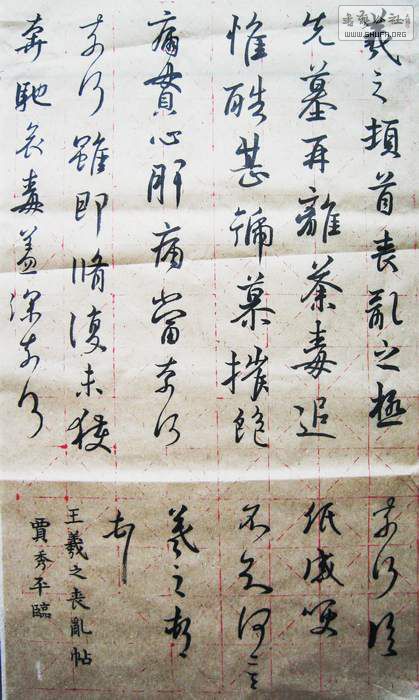 羲之頓首喪亂之極
先墓再離荼毒追
惟酷甚號慕摧絕
痛貫心肝痛當奈何
奈何雖即脩復未獲
奔馳哀毒益深奈何
奈何臨
紙感哽
不知何言
羲之頓首
頓首
王羲之喪亂帖
賈秀平臨
WWW.SHUFA.ORG